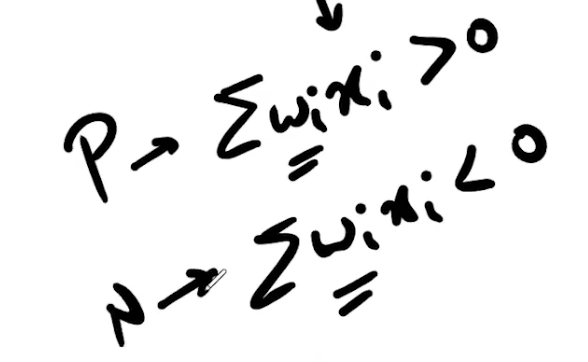 P → Σwᵢxᵢ > 0
N → Σwᵢxᵢ < 0